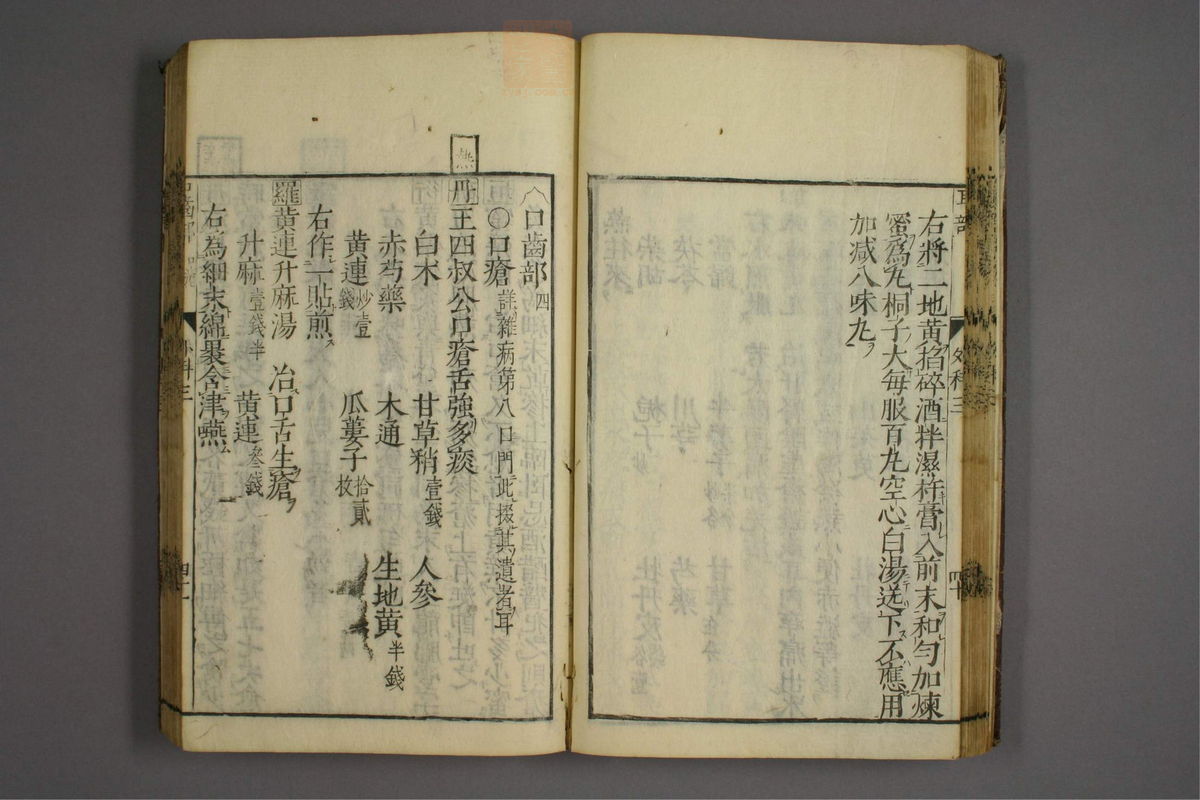 右將二地黄掐碎酒拌濕杵膏入前末和勻加煉
蜜為丸桐子大每服百丸空心白湯送下不應用
加减八味丸
耳部
外科三
四十
口齒部四
口瘡 詳雜病第八口門此掇其遺者耳
熱
丹王四叔公口瘡舌強多痰
白术 甘草稍壹錢 人參
赤芍藥 木通 生地黄半錢
黄連炒壹錢 瓜蔞子拾貳枚
右作一貼煎
羅黄連升麻湯 治口舌生瘡
升麻壹錢半 黄連叁錢
右為細末綿裹含津嚥
外科三
四十一